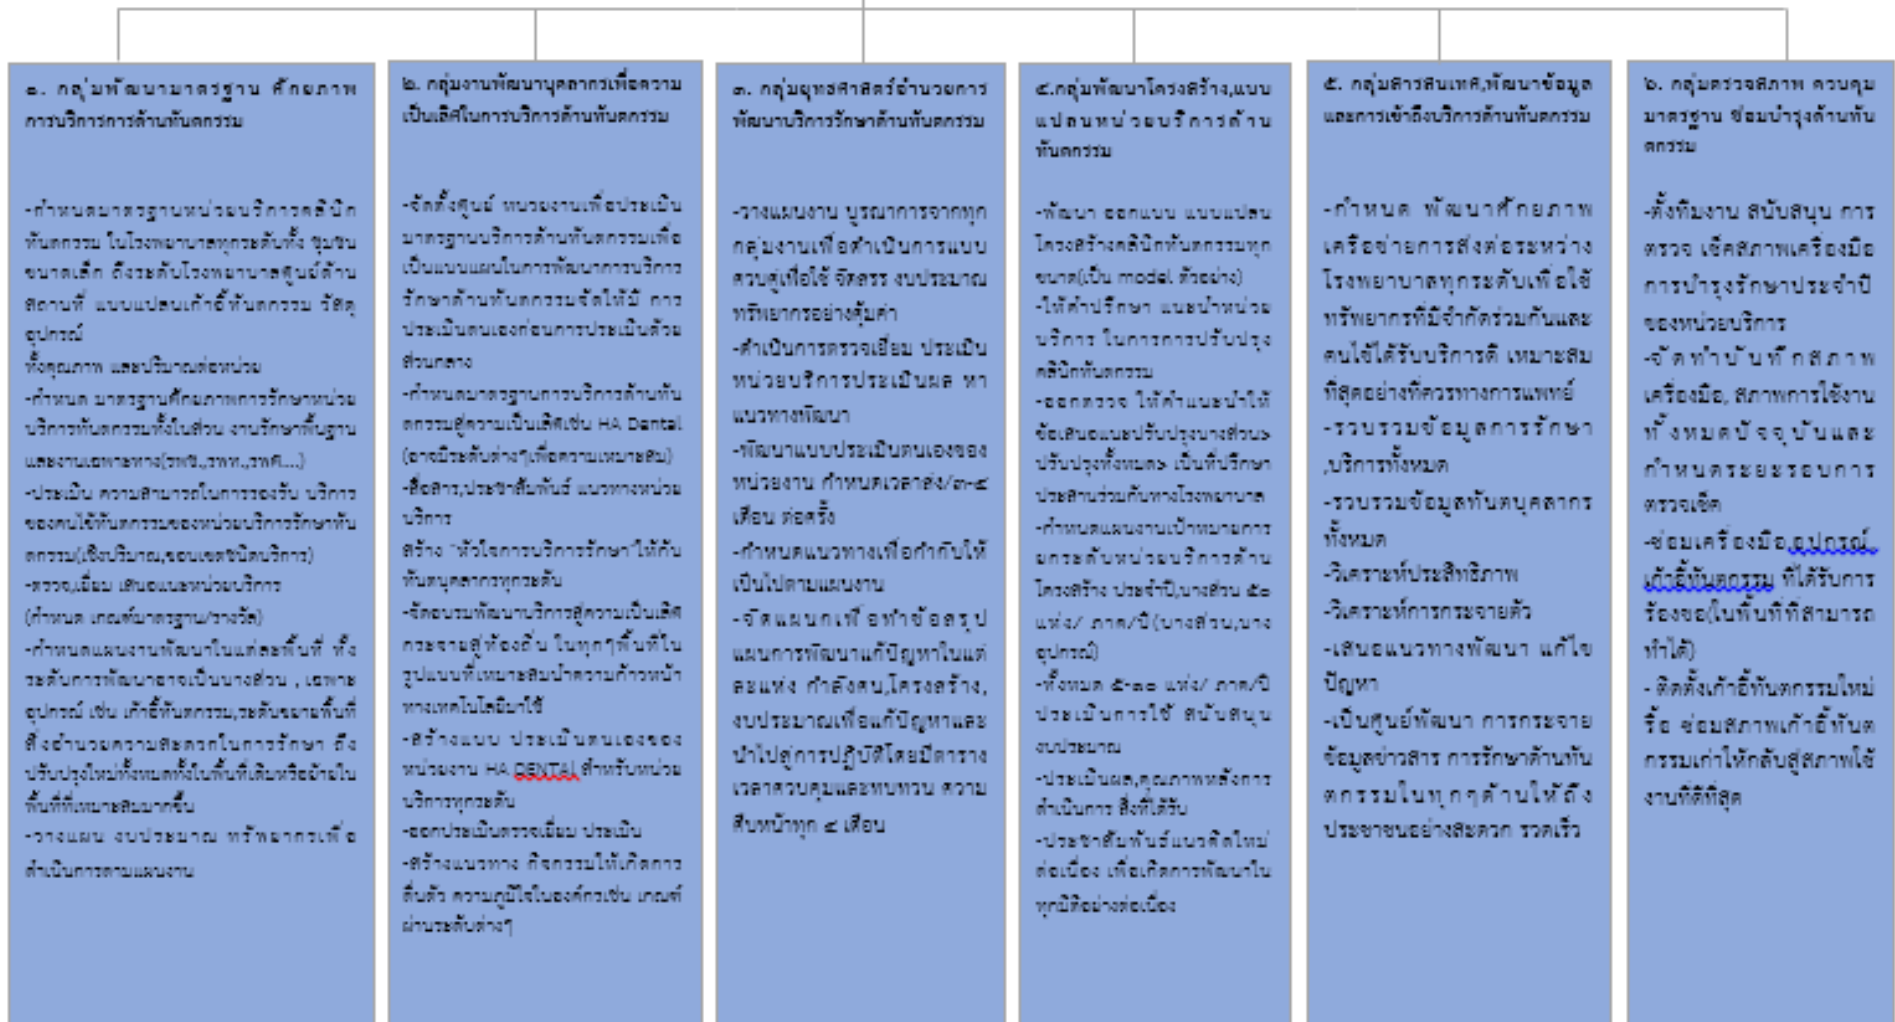 ๑. กลุ่มพัฒนามาตรฐาน ศักยภาพ
การบริการการด้านทันตกรรม
-กำหนดมาตรฐานหน่วยบริการคลินิก
ทันตกรรม ในโรงพยาบาลทุกระดับทั้ง ชุมชน
ขนาดเล็ก ถึงระดับโรงพยาบาลศูนย์ด้าน
สถานที่ แบบแปลนเก้าอี้ทันตกรรม วัสดุ
อุปกรณ์
ทั้งคุณภาพ และปริมาณต่อหน่วย
-กำหนด มาตรฐานศักยภาพการรักษาหน่วย
บริการทันตกรรมทั้งในส่วน งานรักษาพื้นฐาน
และงานเฉพาะทาง(รพช.,รพท.,รพศ...)
-ประเมิน ความสามารถในการรองรับ บริการ
ของคนไข้ทันตกรรมของหน่วยบริการรักษาทัน
ตกรรม(เชิงปริมาณ,ขอบเขตชนิดบริการ)
-ตรวจ,เยี่ยม เสนอแนะหน่วยบริการ
(กำหนด เกณฑ์มาตรฐาน/รางวัล)
-กำหนดแผนงานพัฒนาในแต่ละพื้นที่ ทั้ง
ระดับการพัฒนาอาจเป็นบางส่วน , เฉพาะ
อุปกรณ์ เช่น เก้าอี้ทันตกรรม,ระดับขยายพื้นที่
สิ่งอำนวยความสะดวกในการรักษา ถึง
ปรับปรุงใหม่ทั้งหมดทั้งในพื้นที่เดิมหรือย้ายใน
พื้นที่ที่เหมาะสมมากขึ้น
-วางแผน งบประมาณ ทรัพยากรเพื่อ
ดำเนินการตามแผนงาน
๒. กลุ่มงานพัฒนาบุคลากรเพื่อความ
เป็นเลิศในการบริการด้านทันตกรรม
-จัดตั้งศูนย์ หน่วยงานเพื่อประเมิน
มาตรฐานบริการด้านทันตกรรมเพื่อ
เป็นแบบแผนในการพัฒนาการบริการ
รักษาด้านทันตกรรมจัดให้มี การ
ประเมินตนเองก่อนการประเมินด้วย
ส่วนกลาง
-กำหนดมาตรฐานการบริการด้านทัน
ตกรรมสู่ความเป็นเลิศเช่น HA Dental
(อาจมีระดับต่างๆเพื่อความเหมาะสม)
-สื่อสาร,ประชาสัมพันธ์ แนวทางหน่วย
บริการ
สร้าง "หัวใจการบริการรักษา"ให้กับ
ทันตบุคลากรทุกระดับ
-จัดอบรมพัฒนาบริการสู่ความเป็นเลิศ
กระจายสู่ท้องถิ่น ในทุกๆพื้นที่ใน
รูปแบบที่เหมาะสมนำความก้าวหน้า
ทางเทคโนโลยีมาใช้
-สร้างแบบ ประเมินตนเองของ
หน่วยงาน HA DENTAl สำหรับหน่วย
บริการทุกระดับ
-ออกประเมินตรวจเยี่ยม ประเมิน
-สร้างแนวทาง กิจกรรมให้เกิดการ
ตื่นตัว ความภูมิใจในองค์กรเช่น เกณฑ์
ผ่านระดับต่างๆ
๓. กลุ่มยุทธศาสตร์อำนวยการ
พัฒนาบริการรักษาด้านทันตกรรม
-วางแผนงาน บูรณาการจากทุก
กลุ่มงานเพื่อดำเนินการแบบ
ควบคู่เพื่อใช้ จัดสรร งบประมาณ
ทรัพยากรอย่างคุ้มค่า
-ดำเนินการตรวจเยี่ยม ประเมิน
หน่วยบริการประเมินผล หา
แนวทางพัฒนา
-พัฒนาแบบประเมินตนเองของ
หน่วยงาน กำหนดเวลาส่ง/๓-๔
เดือน ต่อครั้ง
-กำหนดแนวทางเพื่อกำกับให้
เป็นไปตามแผนงาน
-จัดแผนกเพื่อทำข้อสรุป
แผนการพัฒนาแก้ปัญหาในแต่
ละแห่ง กำลังคน,โครงสร้าง,
งบประมาณเพื่อแก้ปัญหาและ
นำไปสู่การปฏิบัติโดยมีตาราง
เวลาควบคุมและทบทวน ความ
คืบหน้าทุก ๔ เดือน
๔.กลุ่มพัฒนาโครงสร้าง,แบบ
แปลนหน่วยบริการด้าน
ทันตกรรม
-พัฒนา ออกแบบ แบบแปลน
โครงสร้างคลินิกทันตกรรมทุก
ขนาด(เป็น model ตัวอย่าง)
-ให้คำปรึกษา แนะนำหน่วย
บริการ ในการการปรับปรุง
คลินิกทันตกรรม
-ออกตรวจ ให้คำแนะนำให้
ข้อเสนอแนะปรับปรุงบางส่วน>
ปรับปรุงทั้งหมด> เป็นที่ปรึกษา
ประสานร่วมกับทางโรงพยาบาล
-กำหนดแผนงานเป้าหมายการ
ยกระดับหน่วยบริการด้าน
โครงสร้าง ประจำปี,บางส่วน ๕๐
แห่ง/ ภาค/ปี(บางส่วน,บาง
อุปกรณ์)
-ทั้งหมด ๕-๑๐ แห่ง/ ภาค/ปี
ประเมินการใช้ สนับสนุน
งบประมาณ
-ประเมินผล,คุณภาพหลังการ
ดำเนินการ สิ่งที่ได้รับ
-ประชาสัมพันธ์แนวคิดใหม่
ต่อเนื่อง เพื่อเกิดการพัฒนาใน
ทุกมิติอย่างต่อเนื่อง
๕. กลุ่มสารสนเทศ,พัฒนาข้อมูล
และการเข้าถึงบริการด้านทันตกรรม
-กำหนด พัฒนาศักยภาพ
เครือข่ายการส่งต่อระหว่าง
โรงพยาบาลทุกระดับเพื่อใช้
ทรัพยากรที่มีจำกัดร่วมกันและ
คนไข้ได้รับบริการดี เหมาะสม
ที่สุดอย่างที่ควรทางการแพทย์
-รวบรวมข้อมูลการรักษา
,บริการทั้งหมด
-รวบรวมข้อมูลทันตบุคลากร
ทั้งหมด
-วิเคราะห์ประสิทธิภาพ
-วิเคราะห์การกระจายตัว
-เสนอแนวทางพัฒนา แก้ไข
ปัญหา
-เป็นศูนย์พัฒนา การกระจาย
ข้อมูลข่าวสาร การรักษาด้านทัน
ตกรรมในทุกๆด้านให้ถึง
ประชาชนอย่างสะดวก รวดเร็ว
๖. กลุ่มตรวจสภาพ ควบคุม
มาตรฐาน ซ่อมบำรุงด้านทัน
ตกรรม
-ตั้งทีมงาน สนับสนุน การ
ตรวจ เช็คสภาพเครื่องมือ
การบำรุงรักษาประจำปี
ของหน่วยบริการ
-จัดทำบันทึกสภาพ
เครื่องมือ, สภาพการใช้งาน
ทั้งหมดปัจจุบันและ
กำหนดระยะรอบการ
ตรวจเช็ค
-ซ่อมเครื่องมือ,อุปกรณ์,
เก้าอี้ทันตกรรม ที่ได้รับการ
ร้องขอ(ในพื้นที่ที่สามารถ
ทำได้)
- ติดตั้งเก้าอี้ทันตกรรมใหม่
รื้อ ซ่อมสภาพเก้าอี้ทันต
กรรมเก่าให้กลับสู่สภาพใช้
งานที่ดีที่สุด